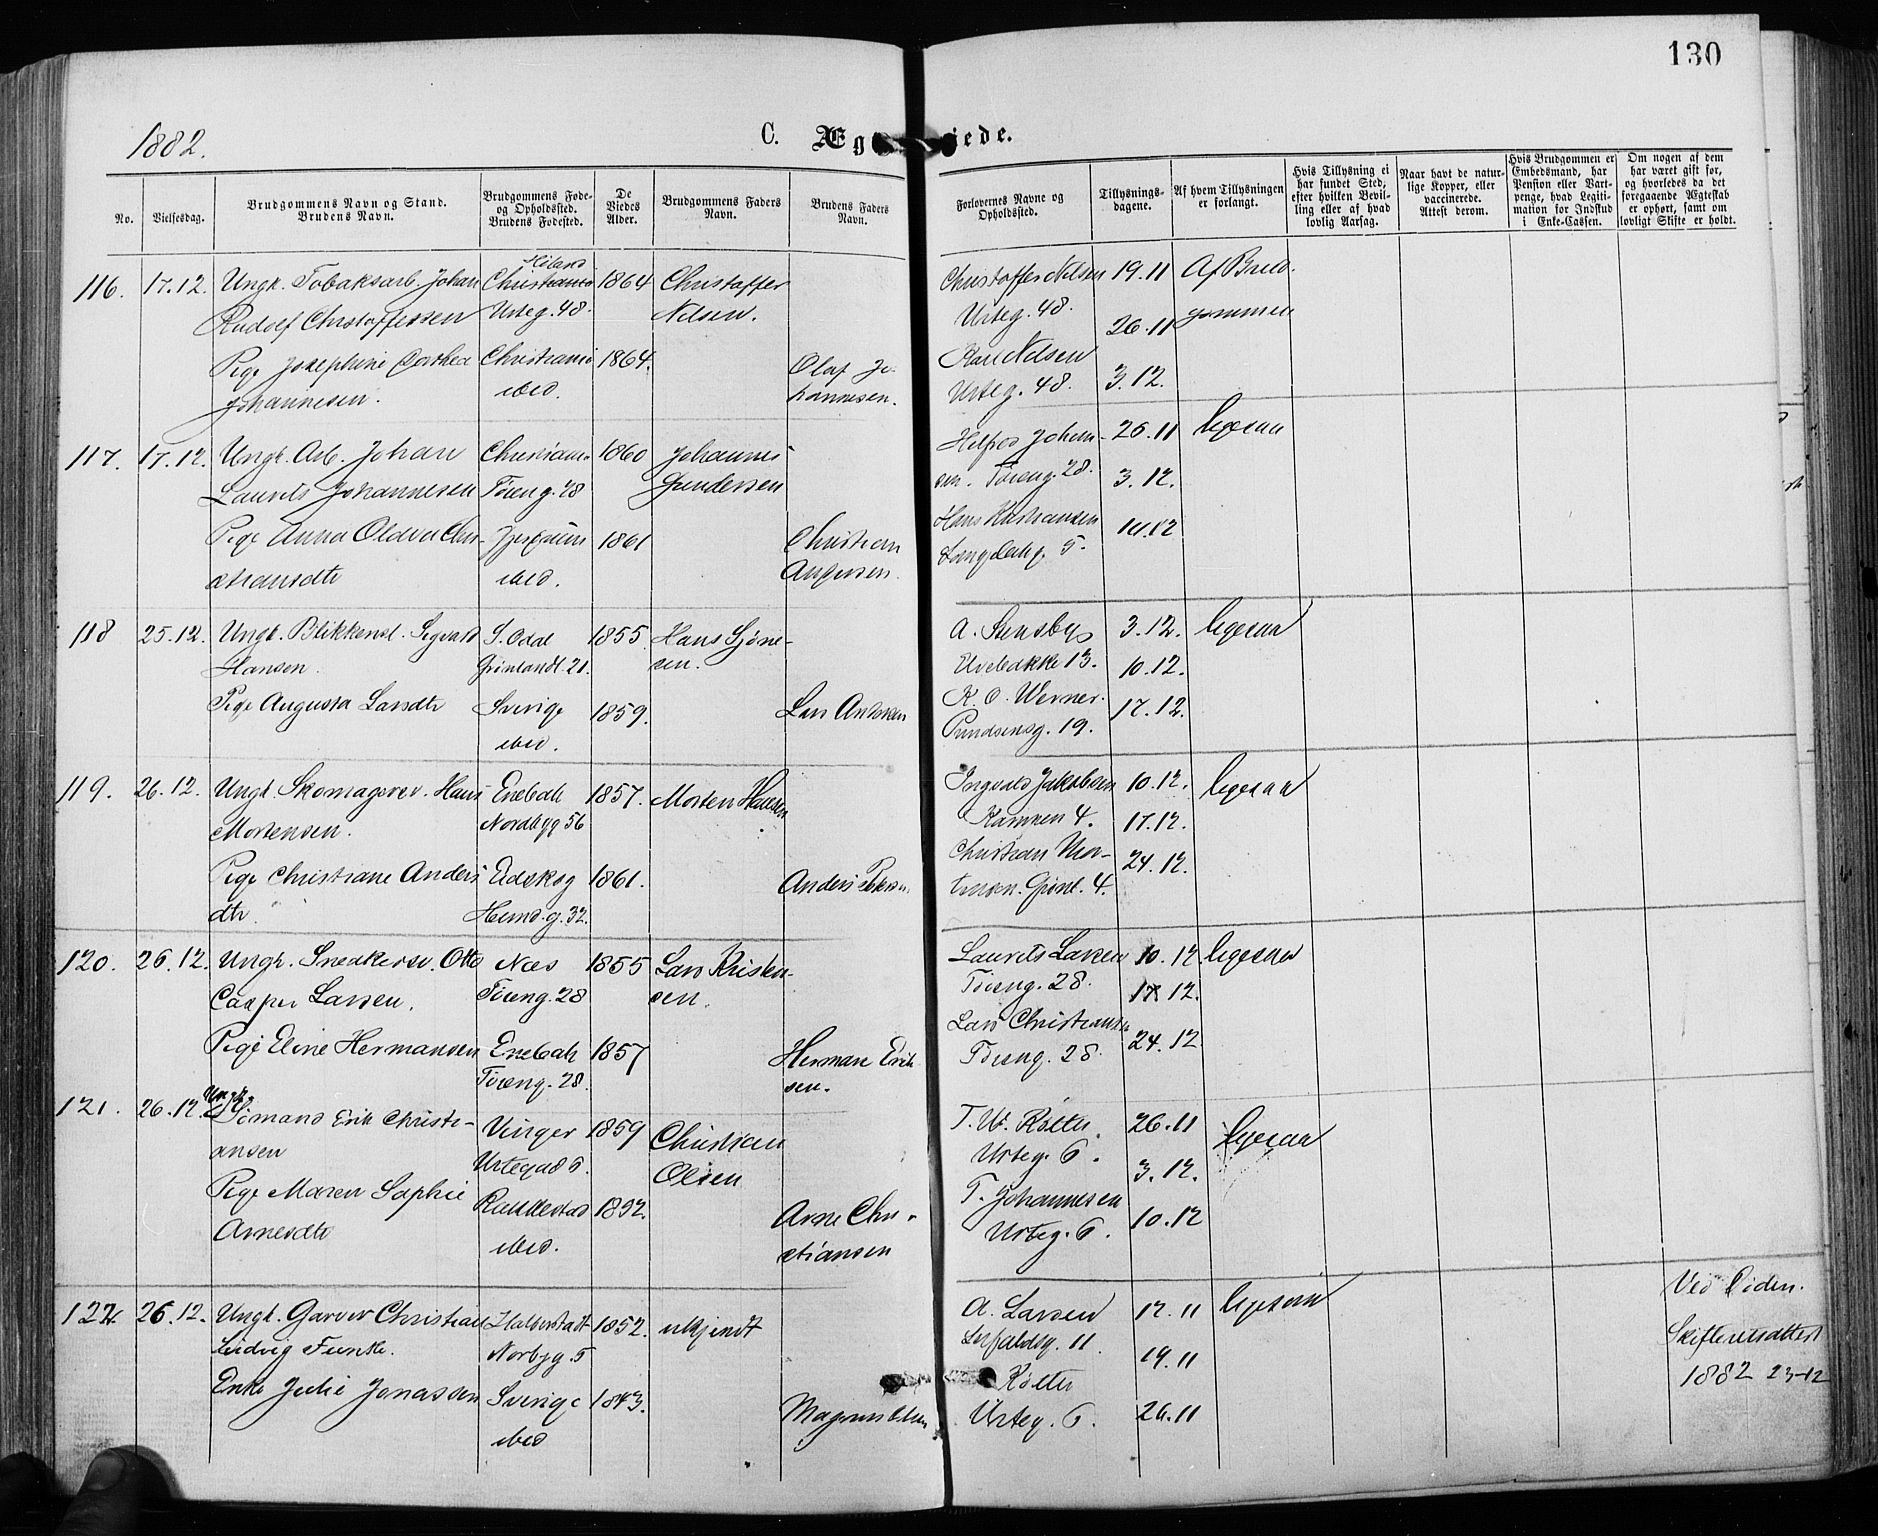 130
1882.
C. Æg iede.
No.
Vielsesdag.
Brudgommens Navn og Stand.
Brudens Navn.
Brudgommens Føde-
og Opholdssted.
Brudens Fødested.
De
Viedes
Alder.
Brudgommens Faders
Navn.
Brudens Faders
Navn.
Forlovernes Navne og
Opholdssted.
Tillysnings-
dagene.
Af hvem Tillysningen
er forlangt.
Hvis Tillysning ei
har fundet Sted,
efter hvilken Bevil-
ling eller af hvad
lovlig Aarsag.
Naar havt de natur-
lige Kopper, eller
vaccinerede.
Attest derom.
Hvis Brudgommen er
Embedsmand, har
Pension eller Vart-
penge, hvad Legiti-
mation for Indskud
i Enke-Cassen.
Om nogen af dem
har været gift før,
og hvorledes da det
foregaaende Ægteskab
er ophørt, samt om
lovligt Skifte er holdt.
116. 17.12. Ungk. Tobaksarb. Johan Christiania 1864 Christoffer
Rudolf Christoffersen Urteg. 48. Nilsen.
Pige Josephine Dorthea Christiania 1864. Olaf Jo-
Johannesen. ibid. hannesen.
Christoffer Nilsen 19.11 Af Brud-
Urteg. 48. 26.11 gommen
Karl Nilsen 3.12.
Urteg. 48.
117. 17.12. Ungk. Arb. Johan Christiania 1860 Johannes
Laurits Johannesen Tøieng. 28 Gundersen
Pige Anna Oldva Chri- 1861 Christian
stiansdtr ibid.
Johan- 26.11 ligesaa
sen. Tøieng. 28. 3.12.
Hans Kristiansen 10.12
5.
118 25.12. Ungk. Blikkensl. Sigvald S. Odal 1855 Hans
Hansen. Grønlandsl. 21. sen.
Pige Augusta Larsdtr Sverige 1859. Lars
ibid.
A. 3.12. ligesaa
Ulvebakke 13. 10.12.
K. O. Werner. 17.12.
19.
119. 26.12. Ungk. Skomagersv. Hans Enebak 1857. Morten Hansen
Mortensen. Nordbyg 56
Pige Christiane Anders Eidskog 1861. Anders Petersen
dtr. 32.
Ingvald Jakobsen 10.12. ligesaa
Kampen 4. 17.12.
Christian Mor- 24.12.
tensen. Grønl. 4.
120. 26.12. Ungk. Snedkersv. Otto Næs 1855 Lars Kristen-
Casper Larsen. Tøieng. 28 sen.
Pige Eline Hermansen Enebak 1857 Herman Erik
Tøieng. 28. sen.
Laurits Larsen 10.12 ligesaa
Tøieng. 28. 17.12.
Lars Christiansen 24.12.
Tøieng. 28.
121. 26.12. Ungk. Sømand Erik Christi- Vinger 1859 Christian
ansen Urtegad 6. Olsen
Pige Maren Sophie Rakkestad 1892. Arne Chri-
Arnesdtr ibid. stiansen
T. W. Røtter. 26.11 ligesaa
Urteg. 6. 3.12.
T. Johannesen 10.12
Urteg. 6.
122 26.12. Ungk. Garver Christian Halberstadt 1852. ukjendt
Ludvig Funke. Norbyg. 5
Enke Julie Jonassen Sverige 1843. Magnus Olsen
ibid
A. Larsen 12.11 ligesaa
11. 19.11
Røtter
Urteg. 6. 26.11
Ved Døden.
Skifteretsattest
1882 23-12